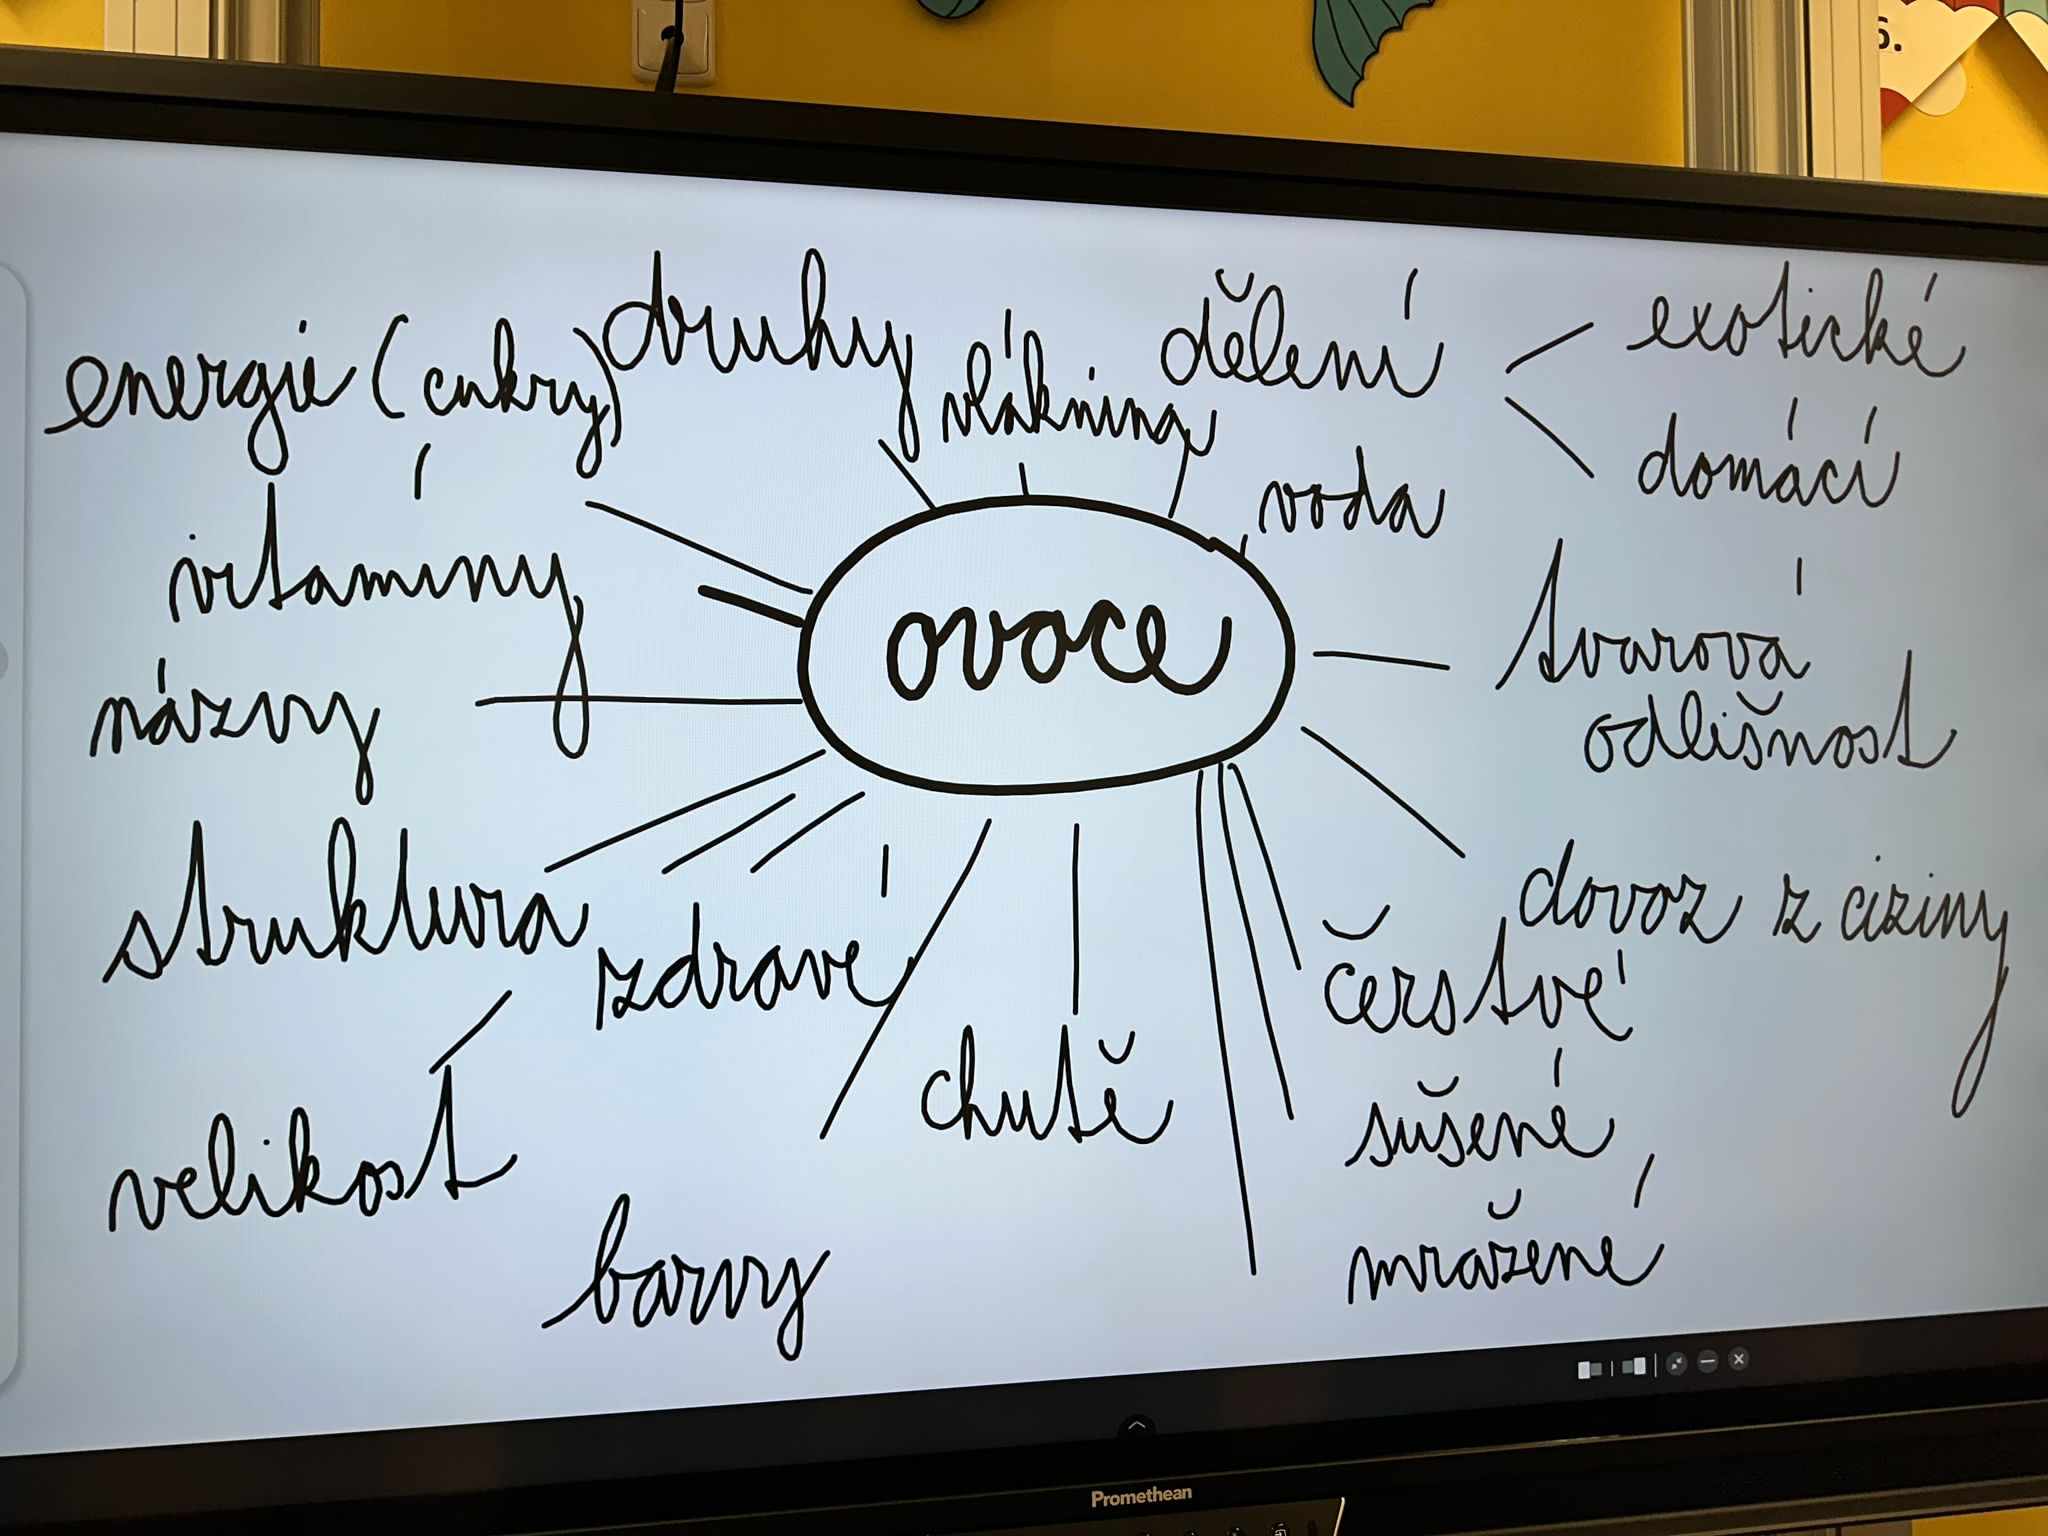 6.
druhy
dělení
exotické
energie (cukry)
vláknina
domácí
voda
vitamíny
ovoce
tvarová
odlišnost
názvy
struktura
zdravé
dovoz z ciziny
čerstvé
chutě
sušené
velikost
mražené
barvy
Promethean